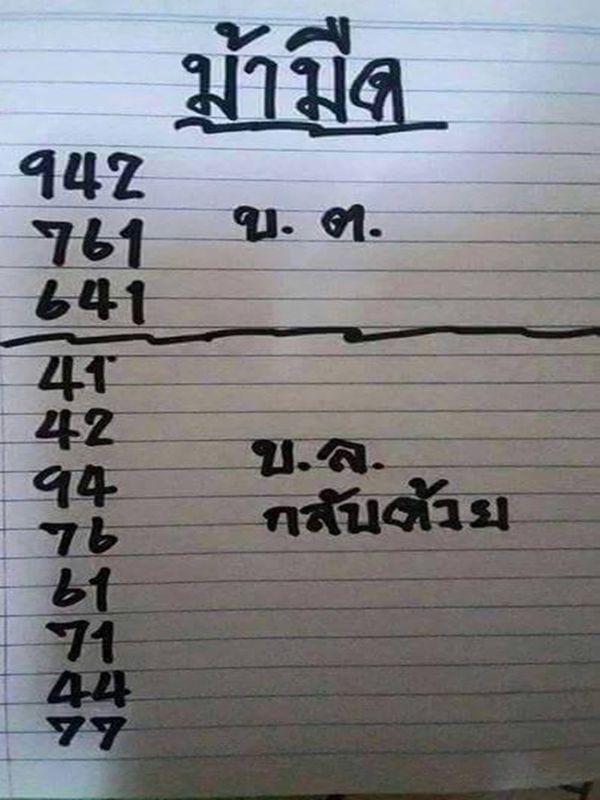 ม้ามืด
942
761 บ. ต.
641
41
42
94 บ.ล.
76 กลับด้วย
61
71
44
77